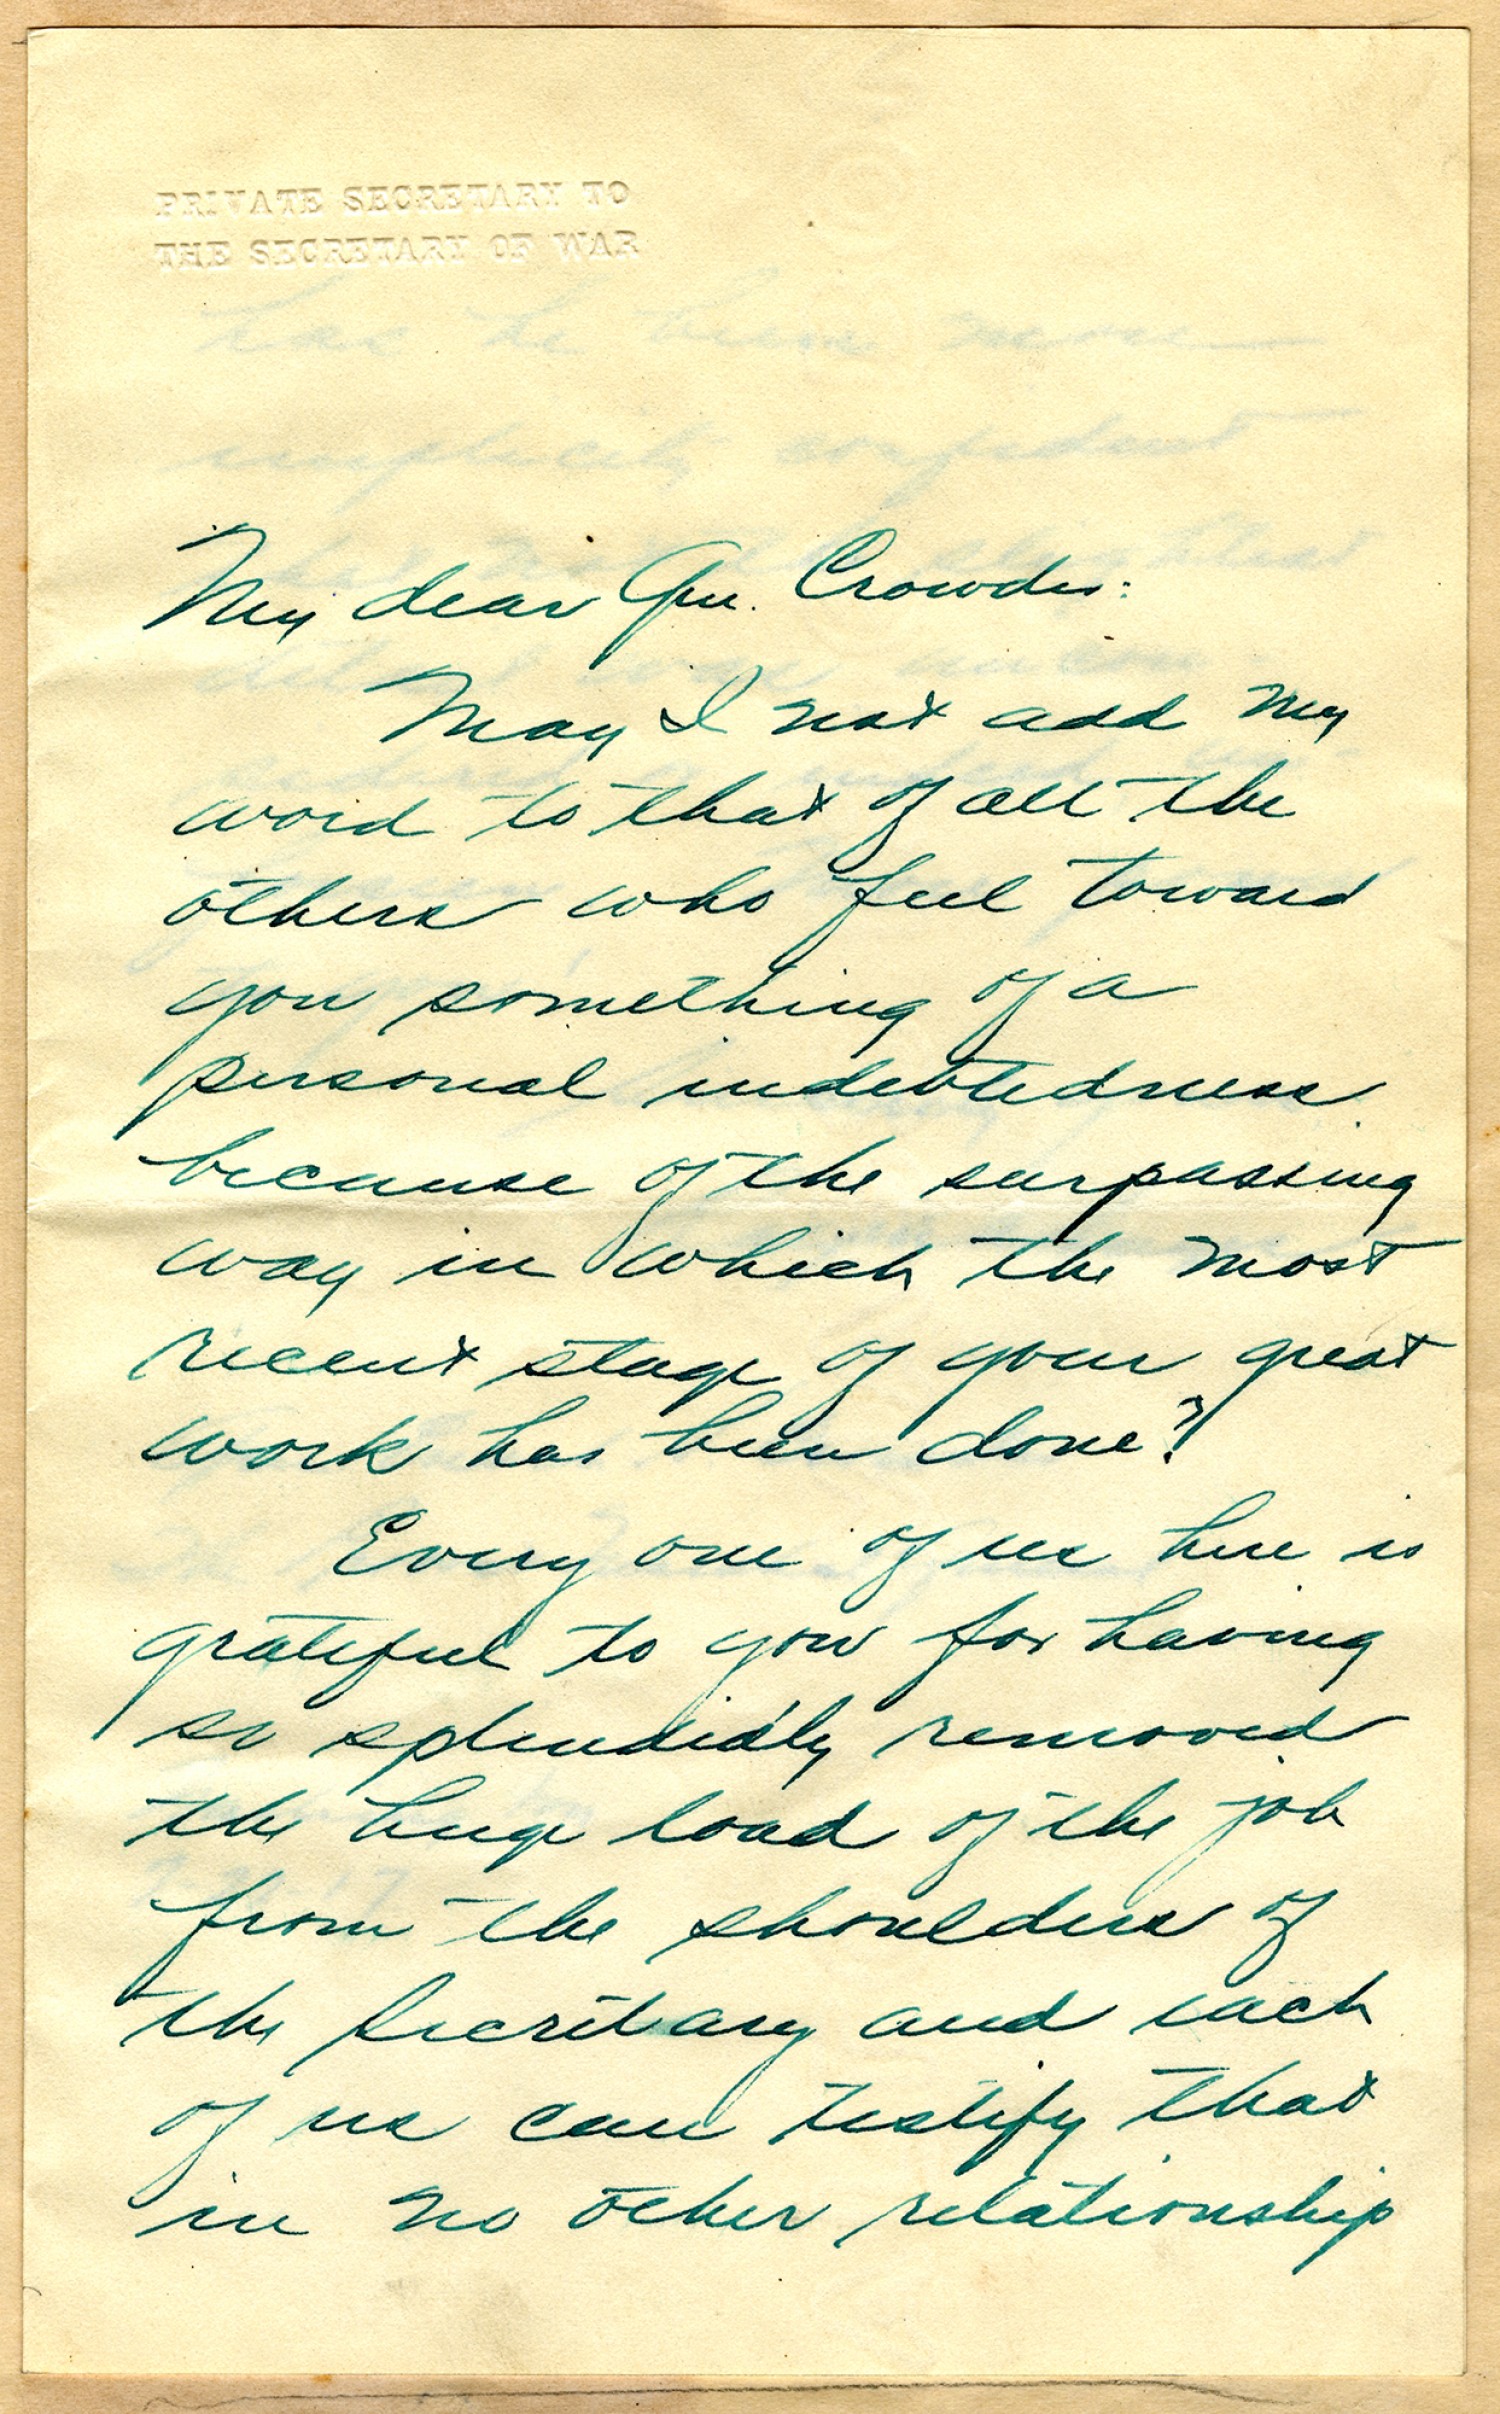 PRIVATE SECRETARY TO
THE SECRETARY OF WAR
My dear Gen. Crowder:
May I not add my
word to that of all the
others who feel toward
you something of a
personal indebtedness
because of the surpassing
way in which the most
recent stage of your great
work has been done?
Every one of us here is
grateful to you for having
so splendidly removed
the huge load of the job
from the shoulders of
the Secretary and each
of us can testify that
in no other relationship